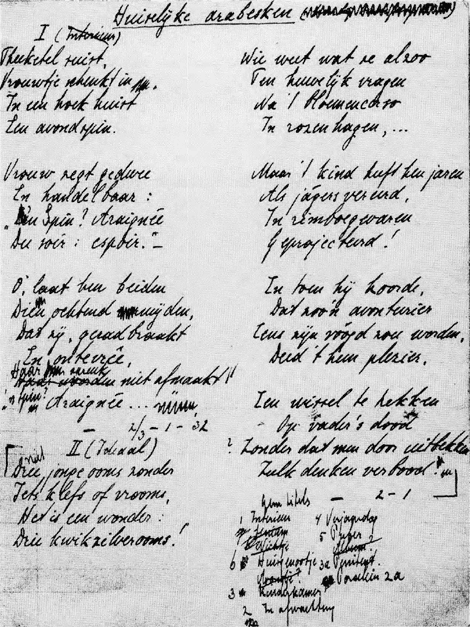 Huiselijke arabesken
I (Interieur)
Theeketel suist,
Vrouwtje schenkt in
In een hoek huist
Een avondspin.
Vrouw zegt gedwee
En handelbaar:
„Een Spin? Araignée
Du soir: espoir."—
O, laat ben beiden
Dien ochtend mijden,
Dat zij, geradbraakt
En
niet afmaakt!
Araignée....
2/3 - 1 - 32
II (Totaal)
Drie jonge ooms zonder
Iets kiefs of vrooms,
Het is een wonder:
Drie kwikzilverooms!
Wie weet wat ze alzoo
Ten huwelijk vragen
Na 't bloemencorso
In rozenhagen,...
Maar 't kind heeft hen jaren
Als jagers vereerd,
In rimboegevaren
Geprojecteerd!
En toen hij hoorde,
Dat zoo'n avonturier
Eens zijn voogd zou worden,
Deed 't hem plezier,
Een wissel te trekken
Op vader's dood
? Zonder dat men door uitlekken
Zulk denken verbood!
— 2 - 1
titels
1 Interieur
4 Verjaardag
5
6
3a
3 Kinderkamer
2a
2 In afwachting